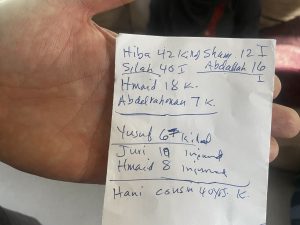 Hiba 42 K. Sham 12 I
Silah 40 I Abdallah 16 I
Hmaid 18 K.
Abdelrahman 7 K.
Yusuf 6 killed
Juri injured
Hmaid 8 injured
Hani cousin 40 yo. K.